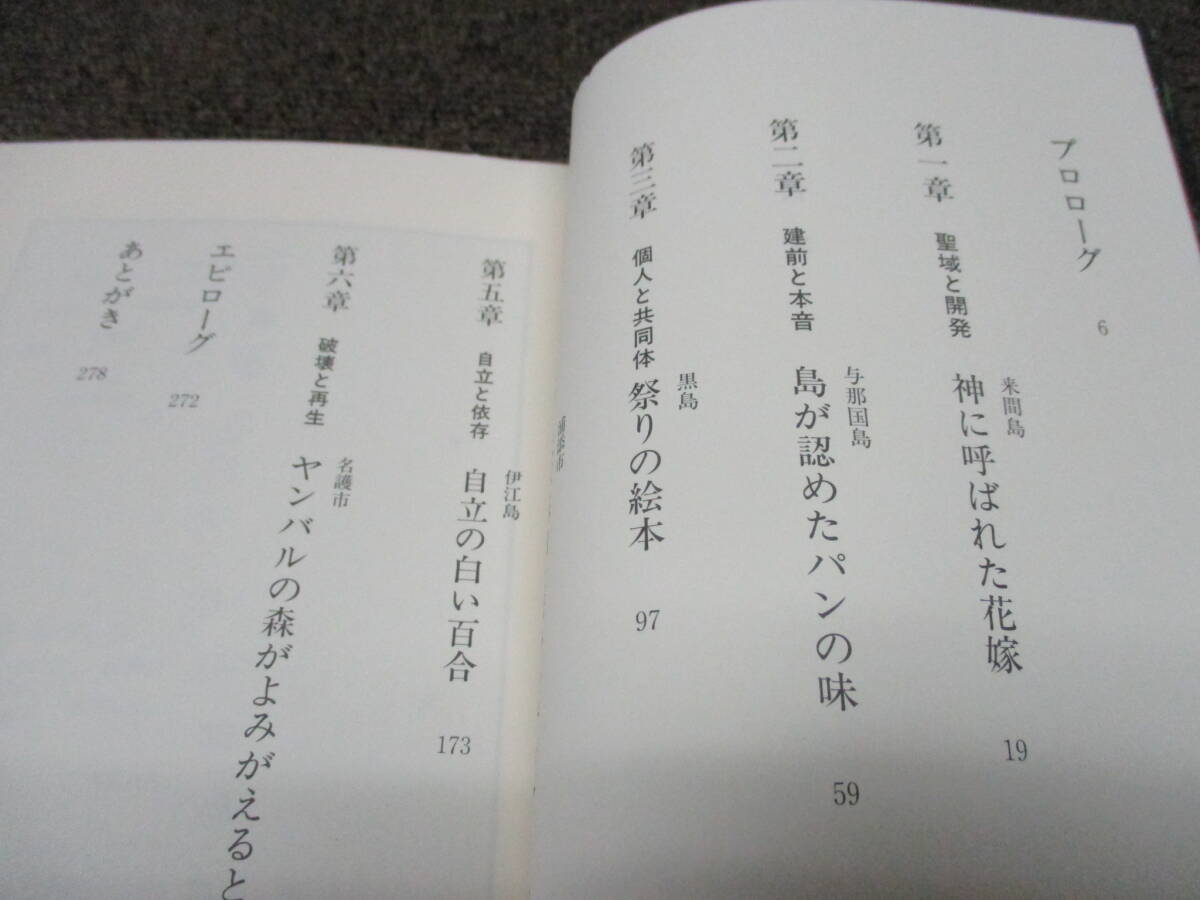 プロローグ 6
第一章 聖域と開発 来間島 神に呼ばれた花嫁 19
第二章 建前と本音 与那国島 島が認めたパンの味 59
第三章 個人と共同体 黒島 祭りの絵本 97
浦添市
第五章 自立と依存 伊江島 自立の白い百合 173
第六章 破壊と再生 名護市 ヤンバルの森がよみがえると
エピローグ 272
あとがき 278